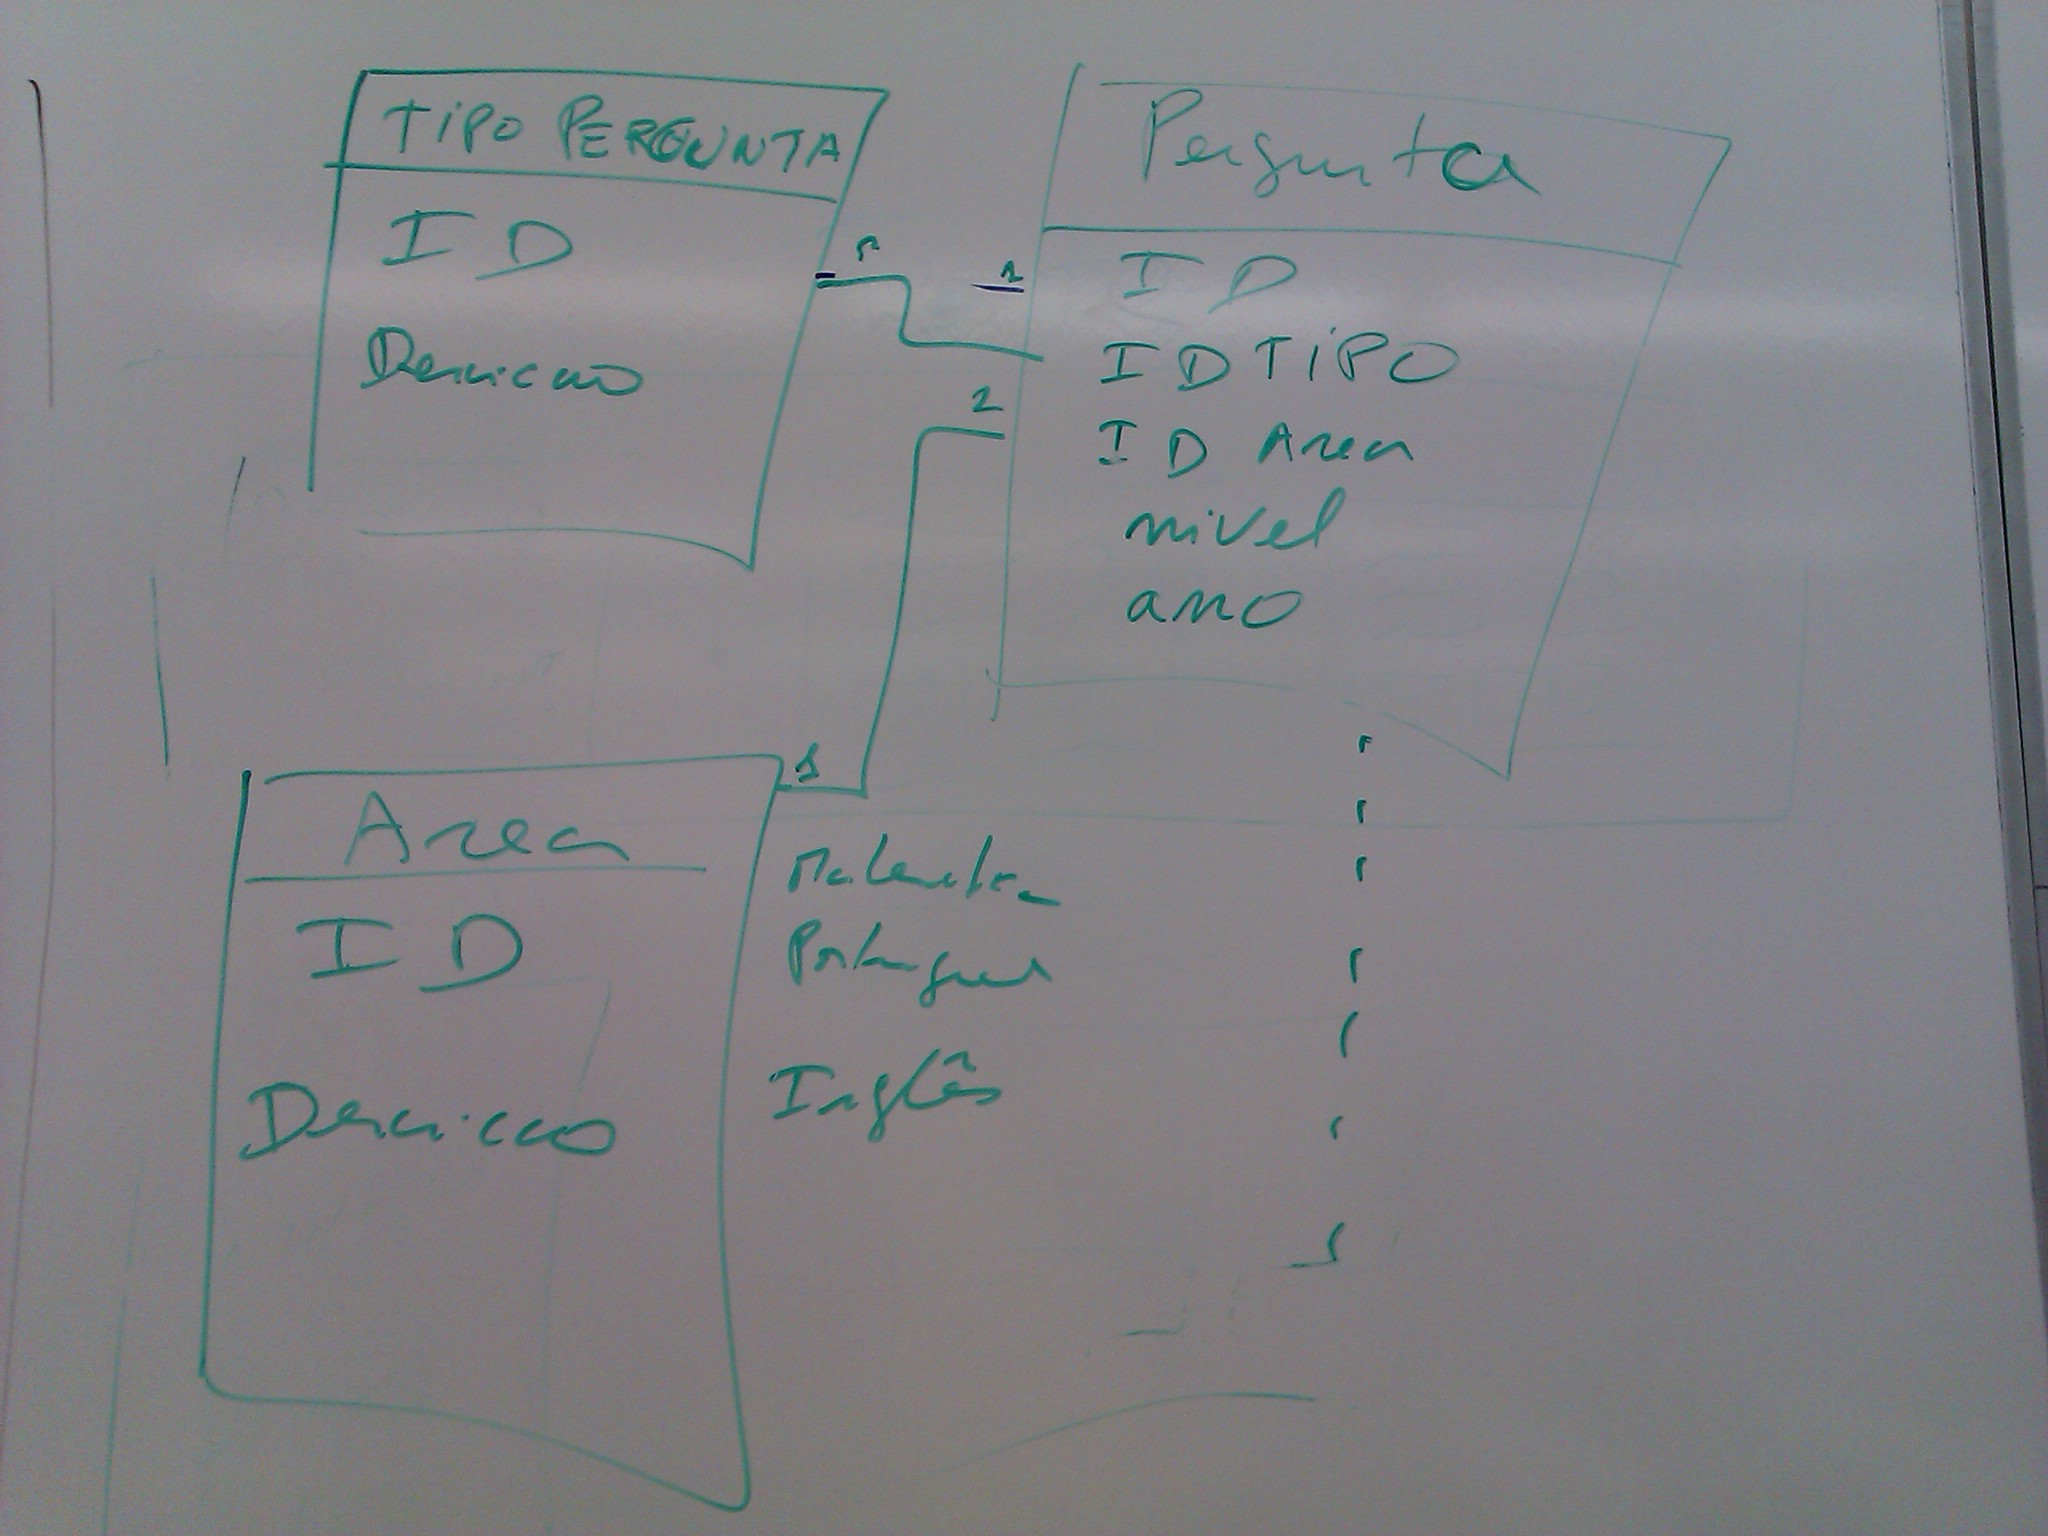 TIPO PERGUNTA
ID
Descricao
1
2
1
Pergunta
ID
ID TIPO
ID Area
nivel
ano
Area
ID
Descricao
Matematica
Portugues
Inglês